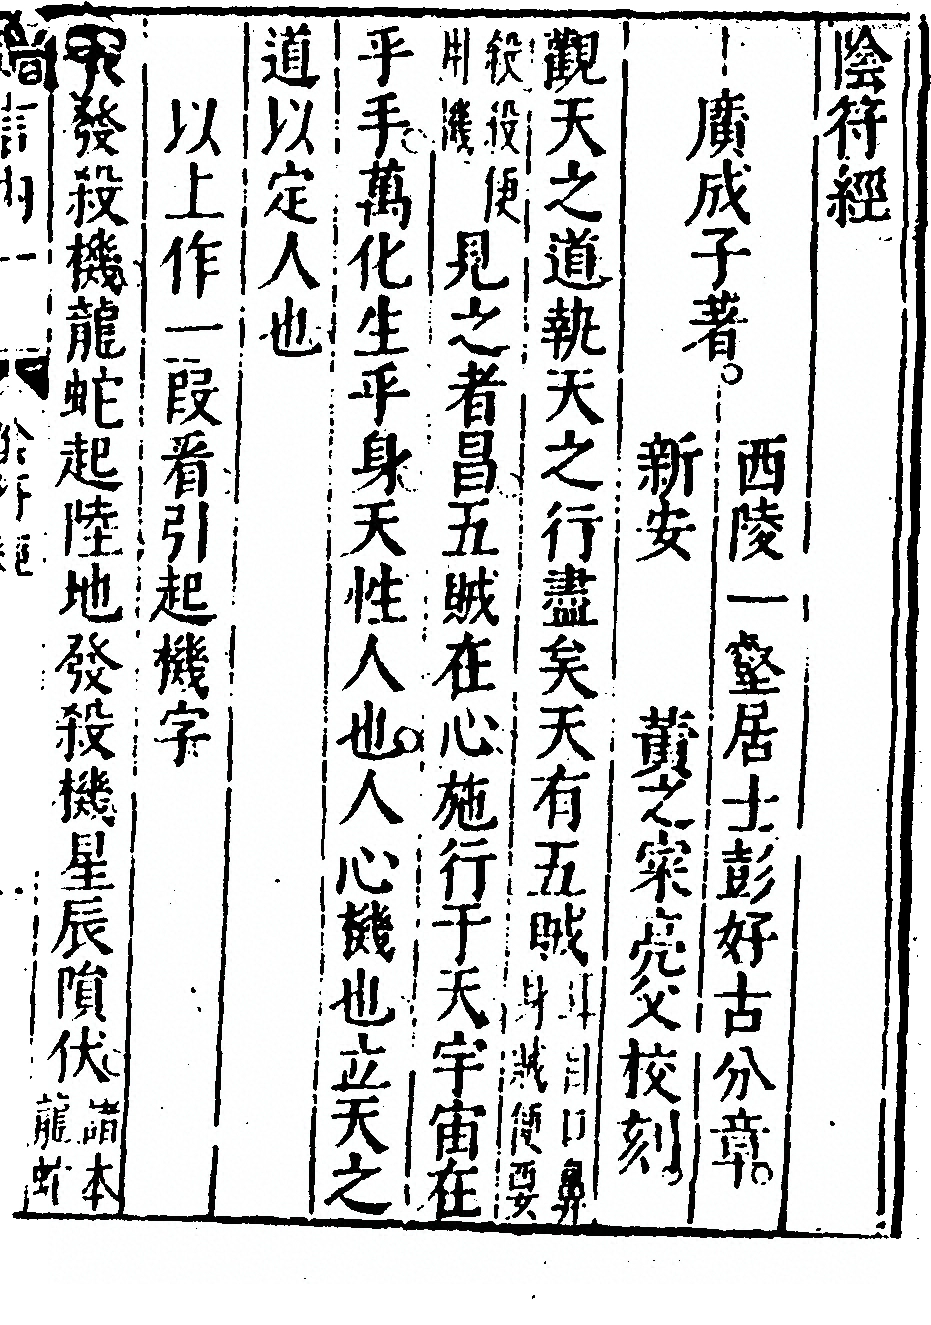 陰符經
廣成子著。
西陵一壑居士彭好古分章。
新安 黄之寀亮父校刻。
觀天之道執天之行盡矣天有五賊
耳目口鼻
身賊便要
殺 便
用機
見之者昌五賊在心施行于天宇宙在
乎手萬化生乎身天性人也人心機也立天之
道以定人也
以上作一段看引起機字
天發殺機龍蛇起陸地發殺機星辰隕伏
諸本
龍蛇